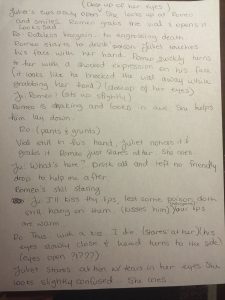 (close up of her eyes)
Juliet's eyes slowly open. She looks up at Romeo
and smiles. Romeo grabs the vial & opens it
looks sad
Ro: Dateless bargain to engrossing death
Romeo starts to drink poison. Juliet touches
his face with her hand. Romeo quickly turns
to her with a shocked expression on his face
(it looks like he knocked the vial away while
grabbing her hand) (close up of her eyes)
Ju: Romeo? (sits up slightly)
Romeo is shaking and looks in awe. She helps
him lay down.
Ro: (pants & grunts)
Vial still in his hand. Juliet notices it &
grabs it. Romeo just stares at her. She cries.
Ju: What's here? Drunk all and left no friendly
drop to help me after
Romeo's still staring
Ju: I'll kiss thy lips, lest some poison doth
still hang on them. (kisses him) your lips
are warm
Ro: Thus with a kiss I die. (stares at her) (his
eyes slowly close & head turns to the side)
(eyes open ?!???)
Juliet stares at him w/ tears in her eyes. She
looks slightly confused. She cries.